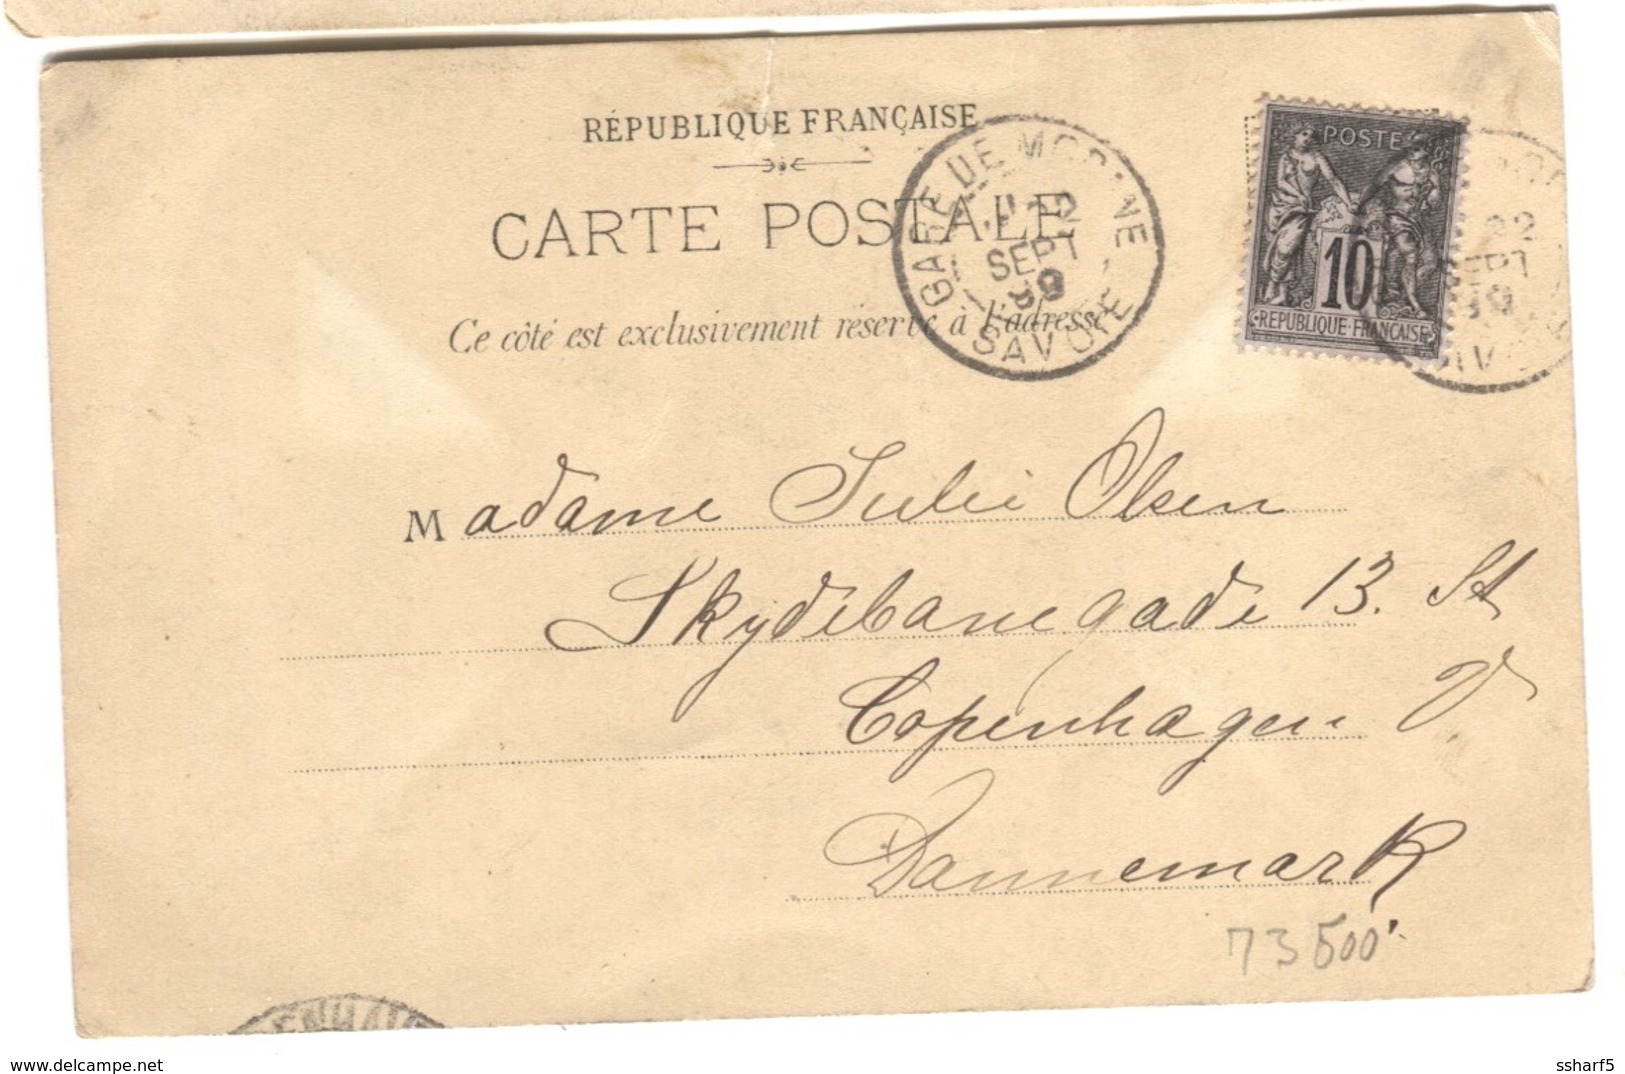 RÉPUBLIQUE FRANÇAISE
CARTE POSTALE
Ce côté est exclusivement réservé à l'adresse
GARE DE MODANE
22
SEPT
99
SAVOIE
POSTE
10
REPUBLIQUE FRANÇAISE
22
SEPT
99
Madame Julie Olsen
Skydebanegade 13. St
Copenhagen V.
Dannemark
73 500
delcampe.net
ssharf5